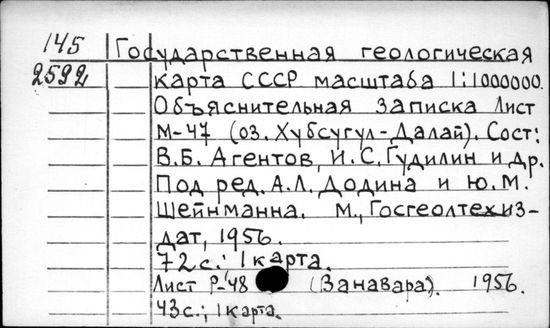 145 Государственная геологическая
2592 карта СССР масштаба 1:1000000.
Объяснительная записка Лист
М-47 (оз. Хубсугул-Далай). Сост:
В.Б. Агентов, И.С. Гудилин и др.
Под ред. А.Л. Додина и Ю.М.
Шейнманна. М., Госгеолтехиз-
дат, 1956.
72с.; 1 карта.
Лист Р-48 (Ванавара). 1956.
43с.; 1 карта.